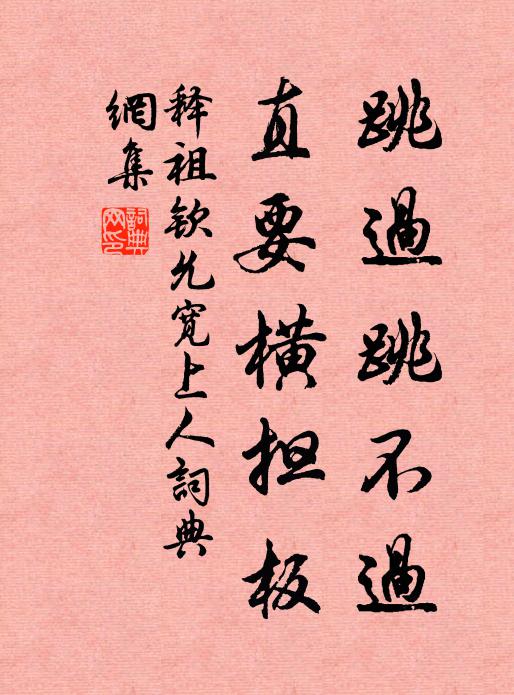 跳過跳不過
直要橫担板
释祖钦允寬上人詞典
網集
詞典
网印